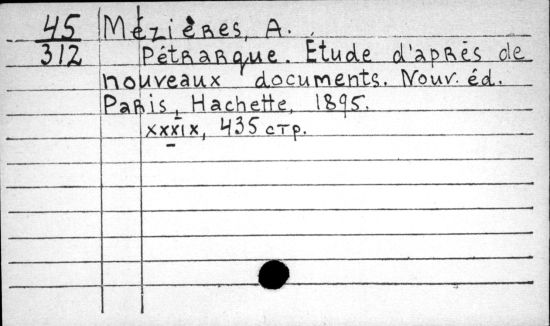 45
312
Mézières, A.
Pétrarque. Étude d'après de
nouveaux documents. Nouv. éd.
Paris, Hachette, 1895.
xxxix, 435 стр.